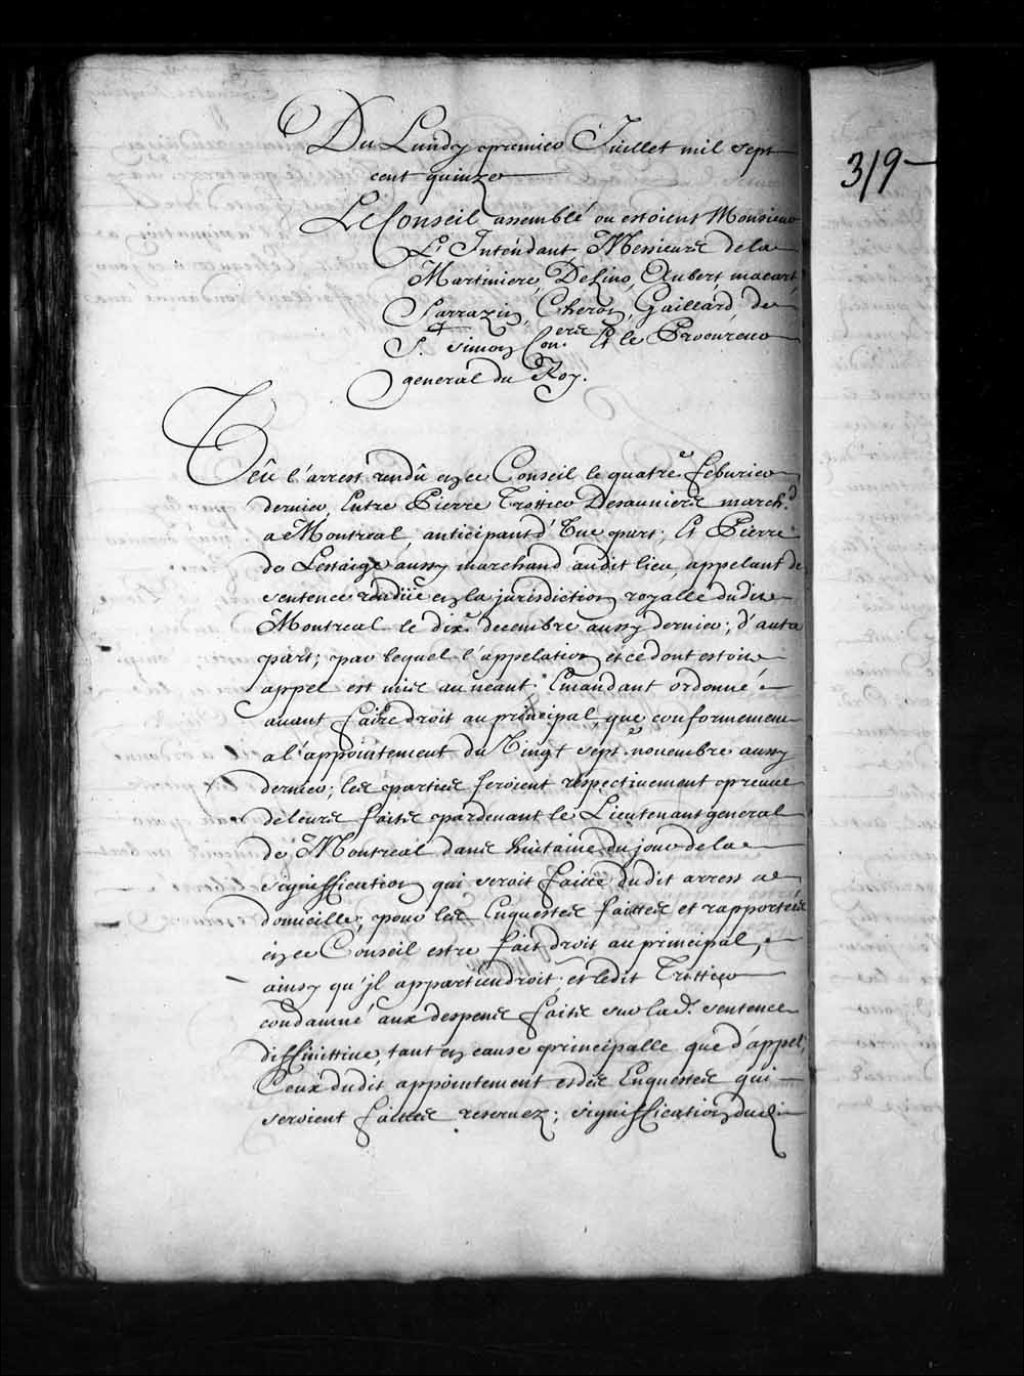 Du Lundy premier Juillet mil sept
cent quinze
319
Le Conseil assemblé ou estoient Monsieur
L'Intendant, Messieurs dela
Martiniere, Delino, Aubert, macart
Sarrazin, Cheron, Gaillard, de
St. simon Con.ers Et le Procureur
general du Roy.
Veû l'arrest rendû en ce Conseil le quatre.e feburier
dernier, Entre Pierre Trottier Desauniers march.d
a Montreal, anticipant d'Vne part; Et Pierre
de Lestaige aussy marchand audit lieu, appelant de
sentence rendüe en la jurisdiction royalle dudit
Montreal le dix.e decembre aussy dernier; d'autre
part; par lequel l'appelation et ce dont estoit
appel est mis au neant. Emandant ordonné
auant faire droit au principal, que conformement
a l'appointement du Vingt sept.e nouembre aussy
dernier; les parties feroient respectiuement preuue
de leurs faits pardeuant le Lieutenant general
de Montreal dans huitaine du jour dela
signiffication qui seroit faitte dudit arrest a
domicille, pour les Enquestes faittes et rapportées
en ce Conseil estre fait droit au principal,
ainsy qu'jl appartiendroit; et ledit Trottier
condamné aux despens faits sur lad. sentence
diffinittiue, tant en cause principalle que d'appel,
Ceux dudit appointement et des Enquestes qui
seroient faittes reseruez; signiffication dud.